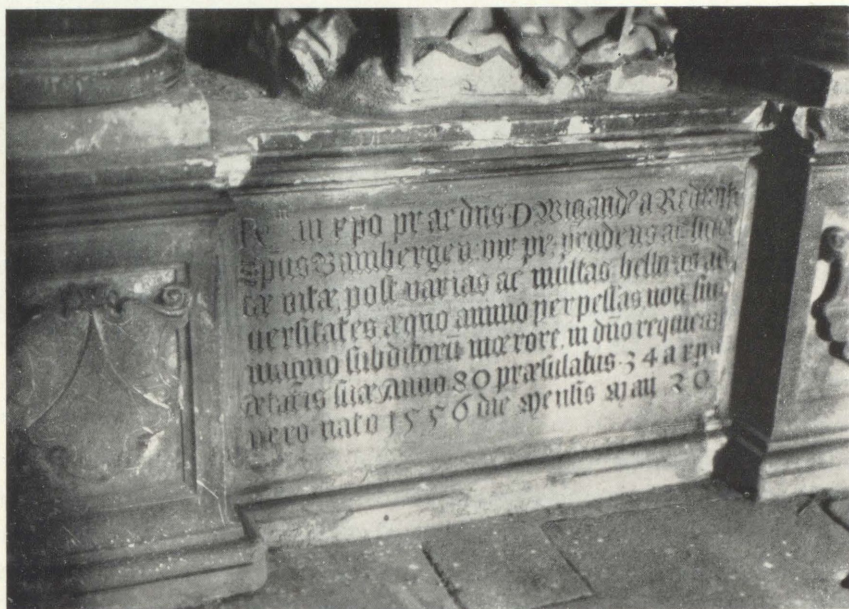 Rᵐ in xpo pr ac dns D Wigand9 a Redwitz
Epus Bamberge. vir pr. prudens ac
tæ vitæ, post varias ac multas bellor ad
uersitates æquo animo perpessas non sine
magno subditorū mœrore, in dño requieuit
ætatis suæ Anno 80 præsulatus 34 a xpo
vero nato 1556 die mensis Maij 20